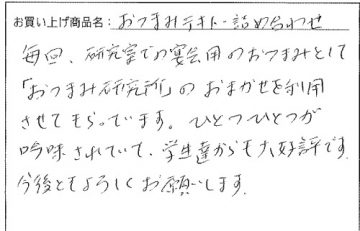 お買い上げ商品名:おつまみテキトー詰め合わせ
毎回、研究室での宴会用のおつまみとして
「おつまみ研究所」のおまかせを利用
させてもらっています。ひとつひとつが
吟味されていて、学生達からも大好評です。
今後ともよろしくお願いします。